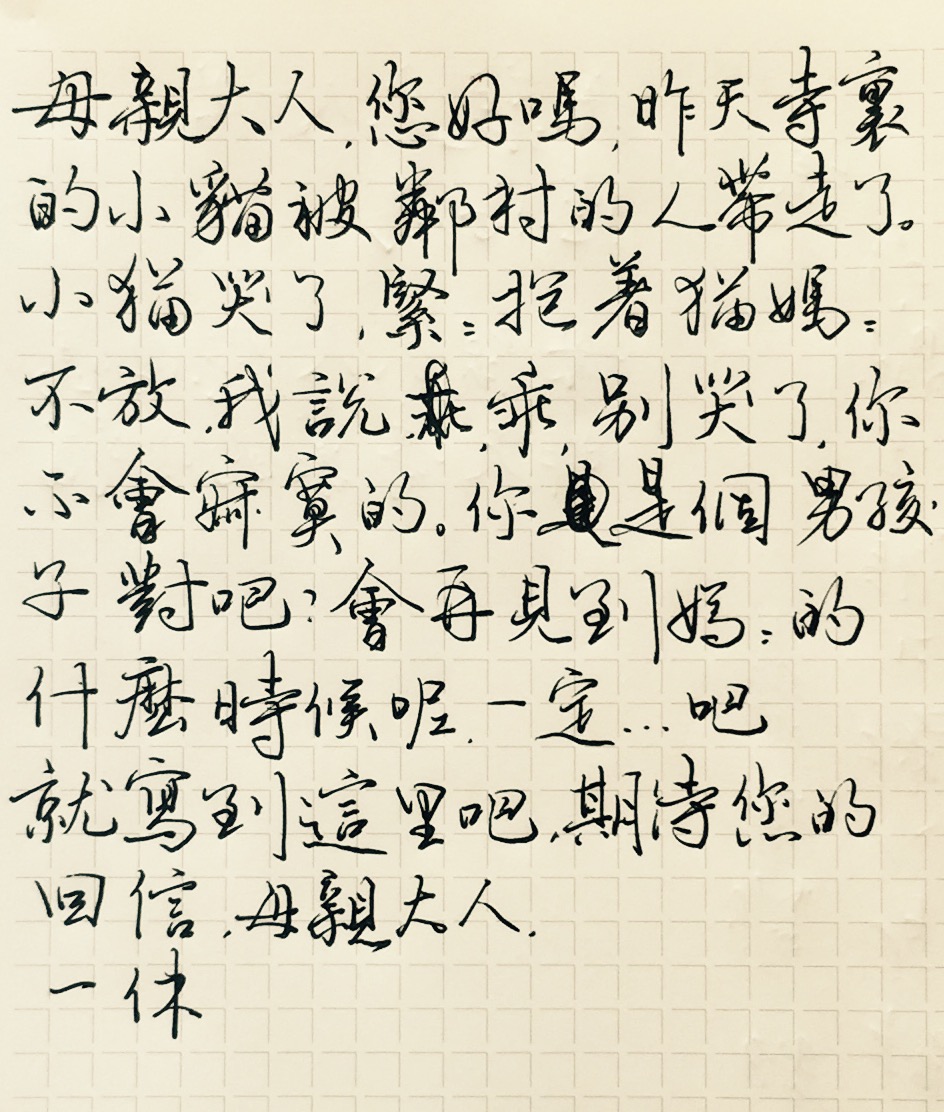 母親大人,您好嗎,昨天寺裏
的小貓被鄰村的人帶走了。
小猫哭了,緊:抱着猫媽:
不放,我說,乖,乖,别哭了,你
不會寂寞的。你是個男孩
子對吧?會再見到媽:的
什麼時候呢,一定…吧
就寫到這里吧,期待您的
回信,母親大人.
一休